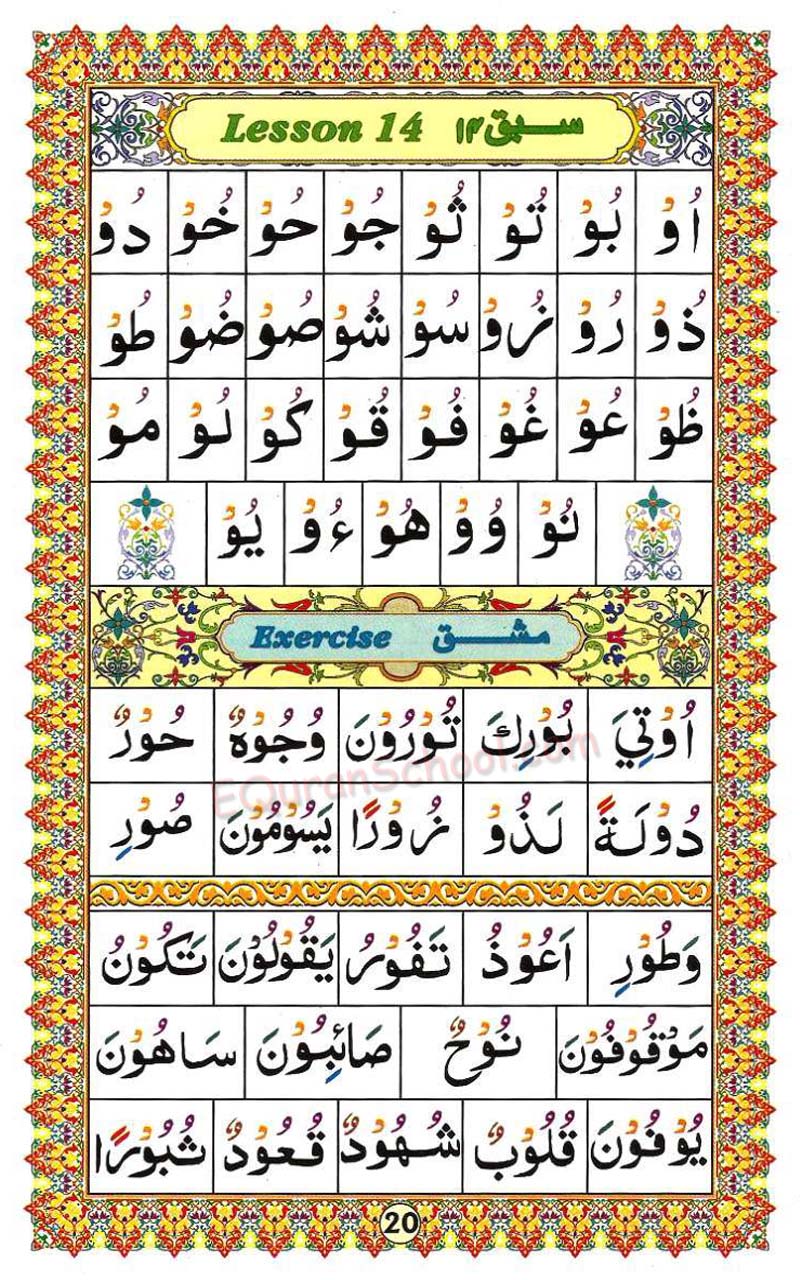 Lesson 14 سبق ۱۴
اُوْ بُوْ تُوْ ثُوْ جُوْ حُوْ خُوْ دُوْ
ذُوْ رُوْ زُوْ سُوْ شُوْ صُوْ ضُوْ طُوْ
ظُوْ عُوْ غُوْ فُوْ قُوْ كُوْ لُوْ مُوْ
نُوْ وُوْ هُوْ ءُوْ يُوْ
Exercise مشق
اُوْتِيَ بُوْرِكَ تُوْرُوْنَ وُجُوْهٌ حُوْرٌ
دُوْلَةً لَذُوْ زُوْرًا يَسُوْمُوْنَ صُوْرِ
EQuranSchool.com
وَطُوْرِ اَعُوْذُ تَفُوْرُ يَقُوْلُوْنَ تَكُوْنُ
مَوْقُوْفُوْنَ نُوْحٌ صَائِبُوْنَ سَاهُوْنَ
يُوْفُوْنَ قُلُوْبٌ شُهُوْدٌ قُعُوْدٌ ثُبُوْرًا
20